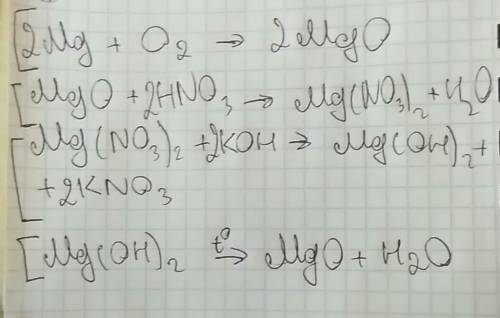 [2Mg + O₂ → 2MgO
[MgO + 2HNO₃ → Mg(NO₃)₂ + H₂O
[Mg(NO₃)₂ + 2KOH → Mg(OH)₂ +
+ 2KNO₃
[Mg(OH)₂ t° → MgO + H₂O